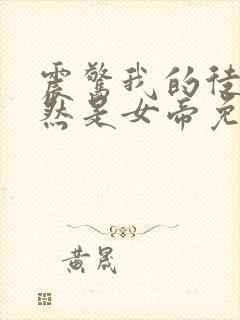 震惊我的徒
然是女帝免
黄晟